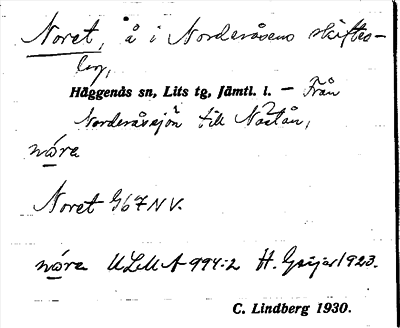 Noret, å i Norderåsens skiftes-
lag,
Häggenås sn, Lits tg, Jämtl. l. — Från
Norderåsjön till Nästån,
nɷra
Noret G67NV.
nɷra ULMA 994:2 H. Geijer 1923.
C. Lindberg 1930.